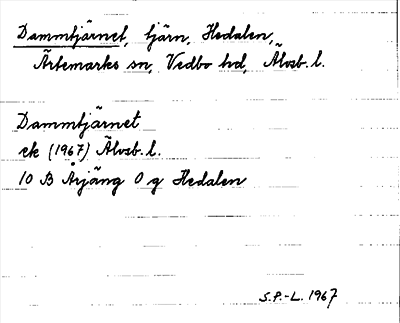 Dammtjärnet, tjärn, Hedalen,
Ärtemarks sn, Vedbo hd, Älvsb. l.
Dammtjärnet
ek (1967) Älvsb. l.
10 B Årjäng 0 g Hedalen
S.P.-L. 1967